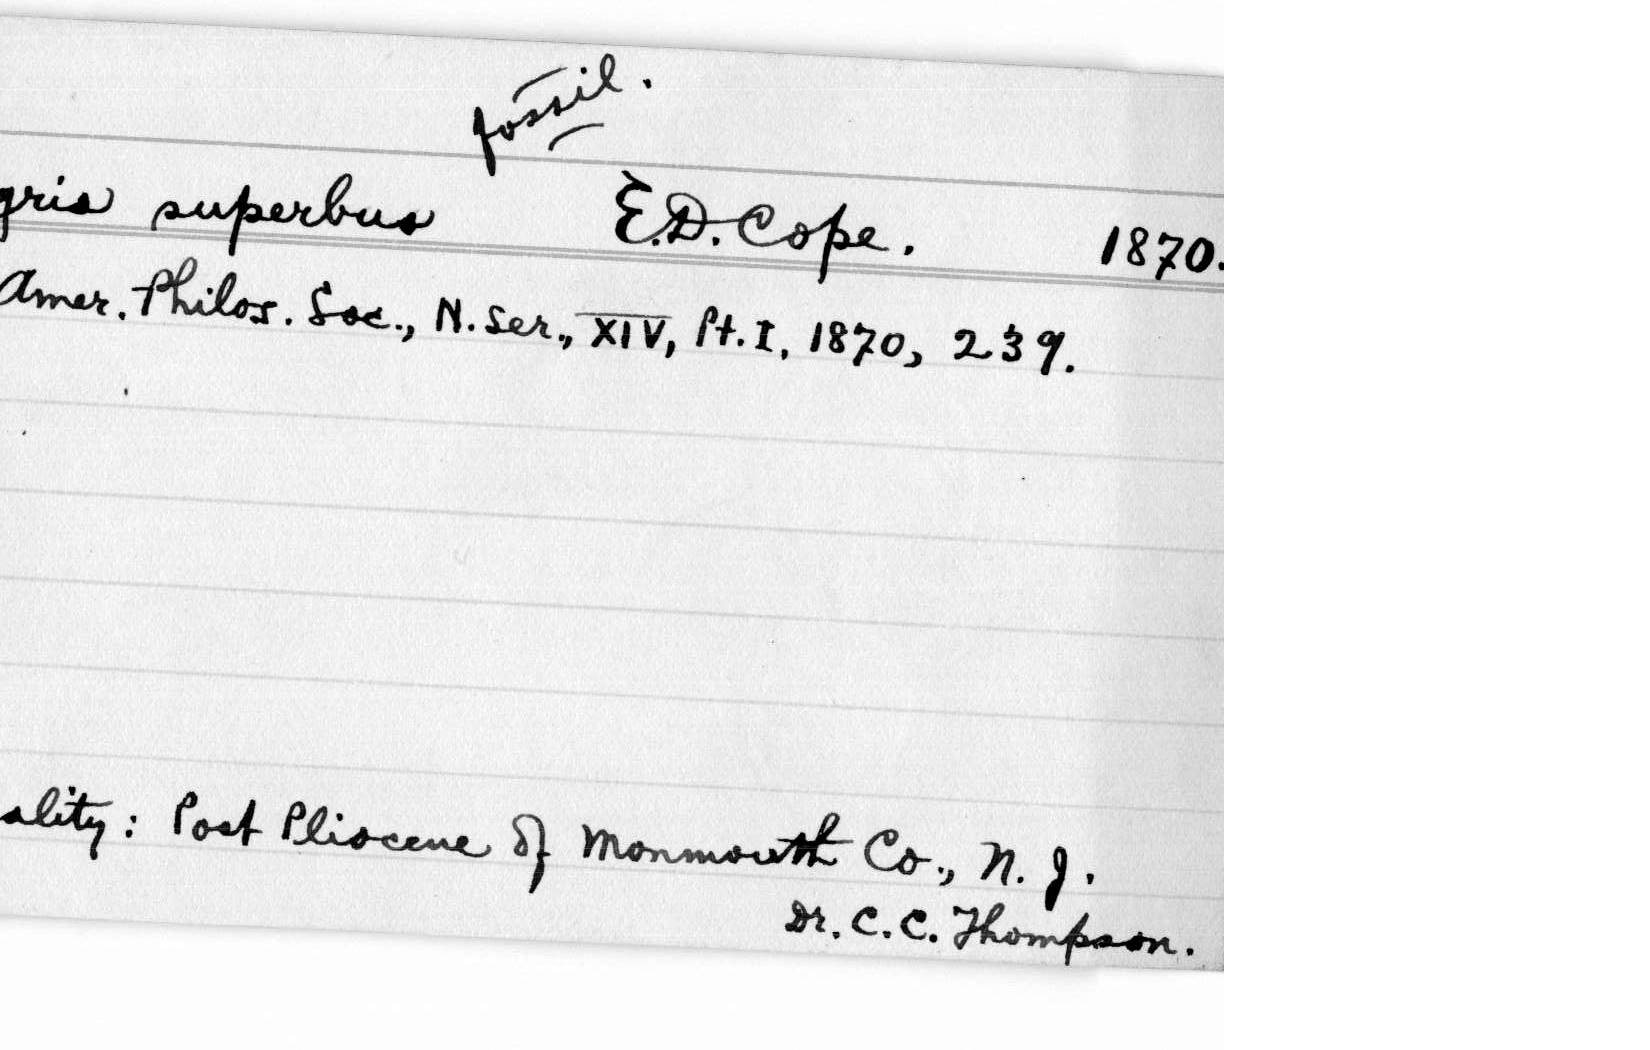 fossil.
gris superbus E.D. Cope. 1870.
Amer. Philos. Soc., N. Ser., XIV, Pt. I, 1870, 239.
ality: Post Pliocene of Monmouth Co., N. J.
Dr. C. C. Thompson.